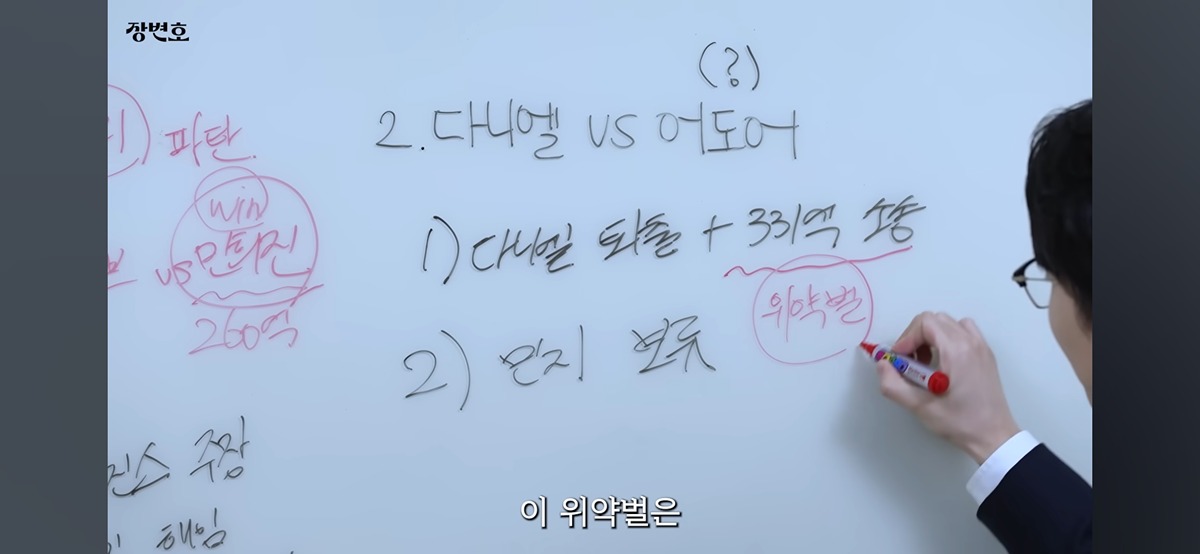 장변호
(?)
2. 다니엘 vs 어도어
파탄.
win
vs 민희진
260억
1) 다니엘 퇴출 + 331억 소송
위약벌
2) 민지 보류
주장
해임
이 위약벌은